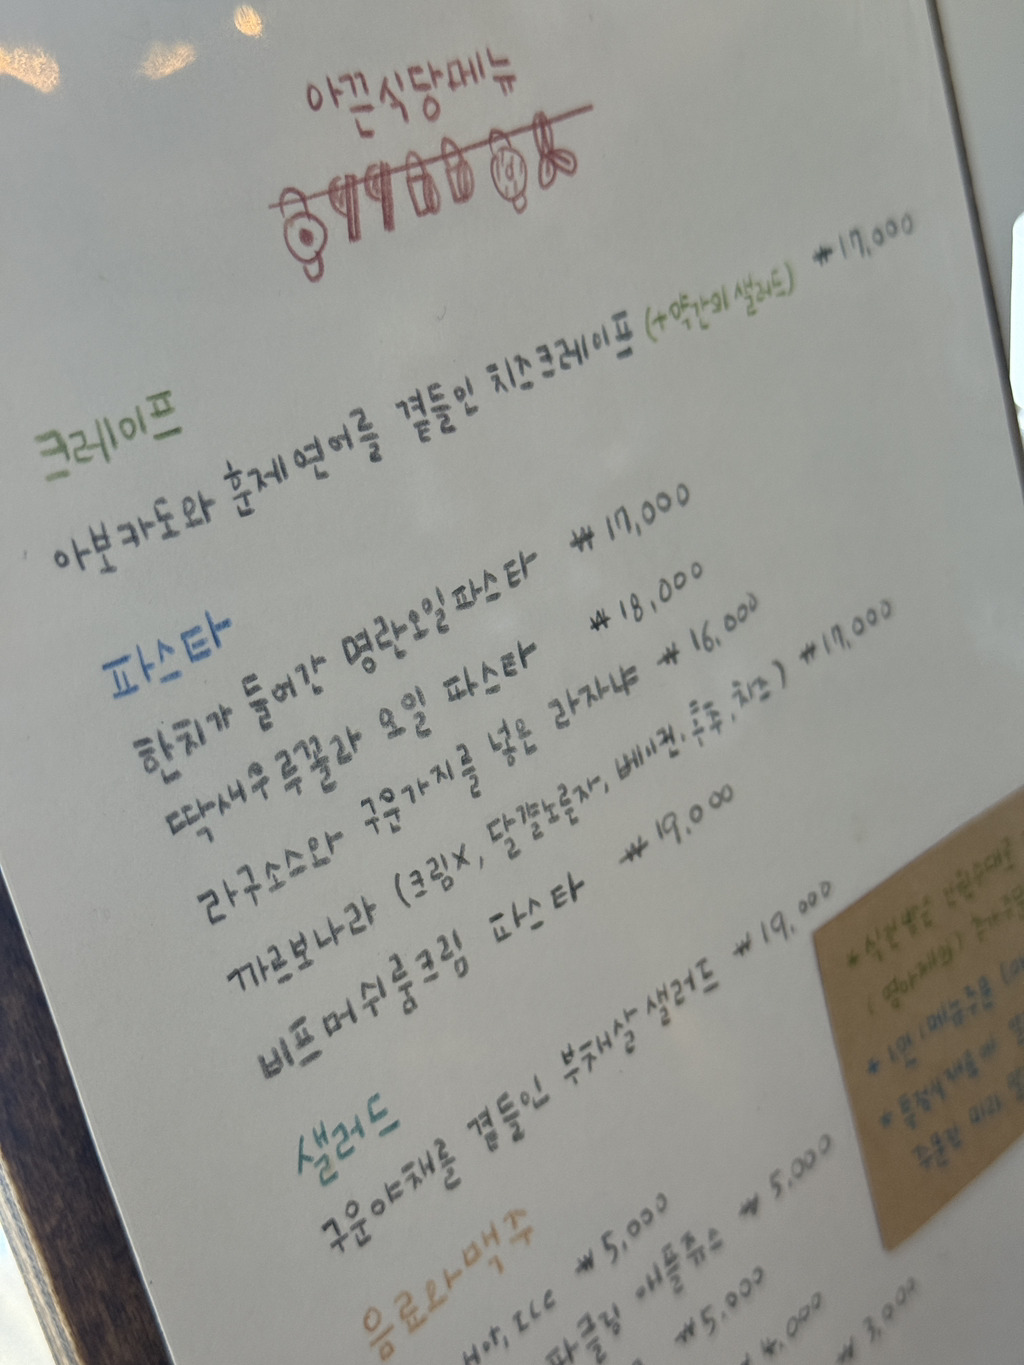 아끈식당메뉴
크레이프
아보카도와 훈제연어를 곁들인 치즈크레이프 (+약간의 샐러드) ₩17,000
파스타
한치가 들어간 명란오일파스타 ₩17,000
딱새우루꼴라 오일 파스타 ₩18,000
라구소스와 구운가지를 넣은 라자냐 ₩16,000
까르보나라 (크림X, 달걀노른자, 베이컨, 후추, 치즈) ₩17,000
비프머쉬룸크림 파스타 ₩19,000
샐러드
구운야채를 곁들인 부채살 샐러드 ₩19,000
음료와맥주
₩5,000
애플쥬스 ₩5,000
₩5,000
₩4,000
₩3,000
* 1인 1메뉴주문